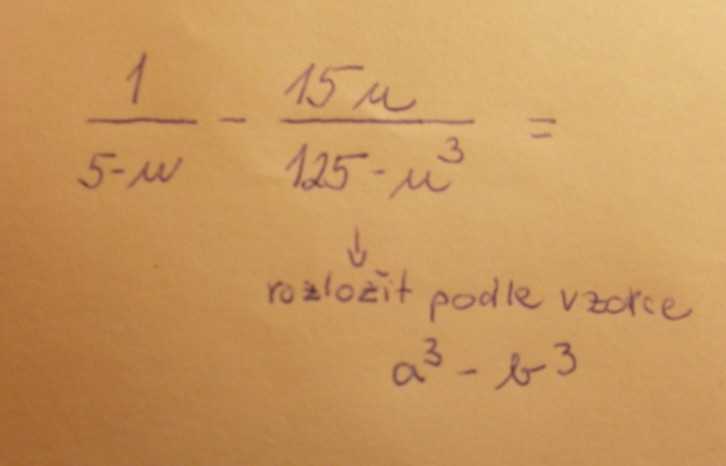 1/(5-u) - 15u/(125-u³) =
↓
rozložit podle vzorce
a³ - b³